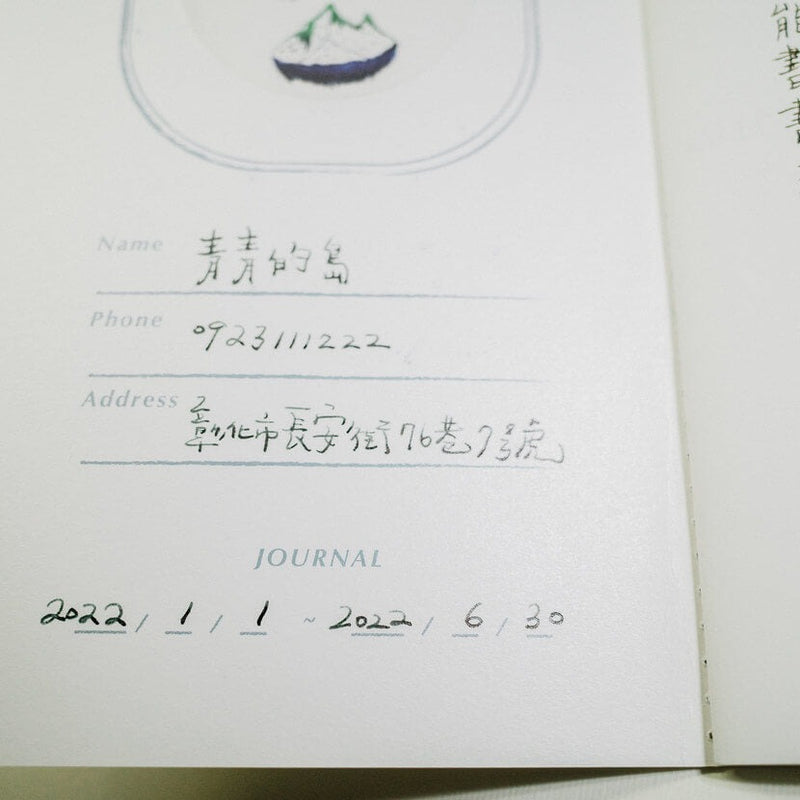 Name 青青的島
Phone 0923111222
Address 彰化市長安街76巷7號
JOURNAL
2022 / 1 / 1 ~ 2022 / 6 / 30
能
書